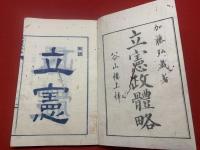 加藤弘蔵著
立憲政體略
谷山樓上梓
立憲